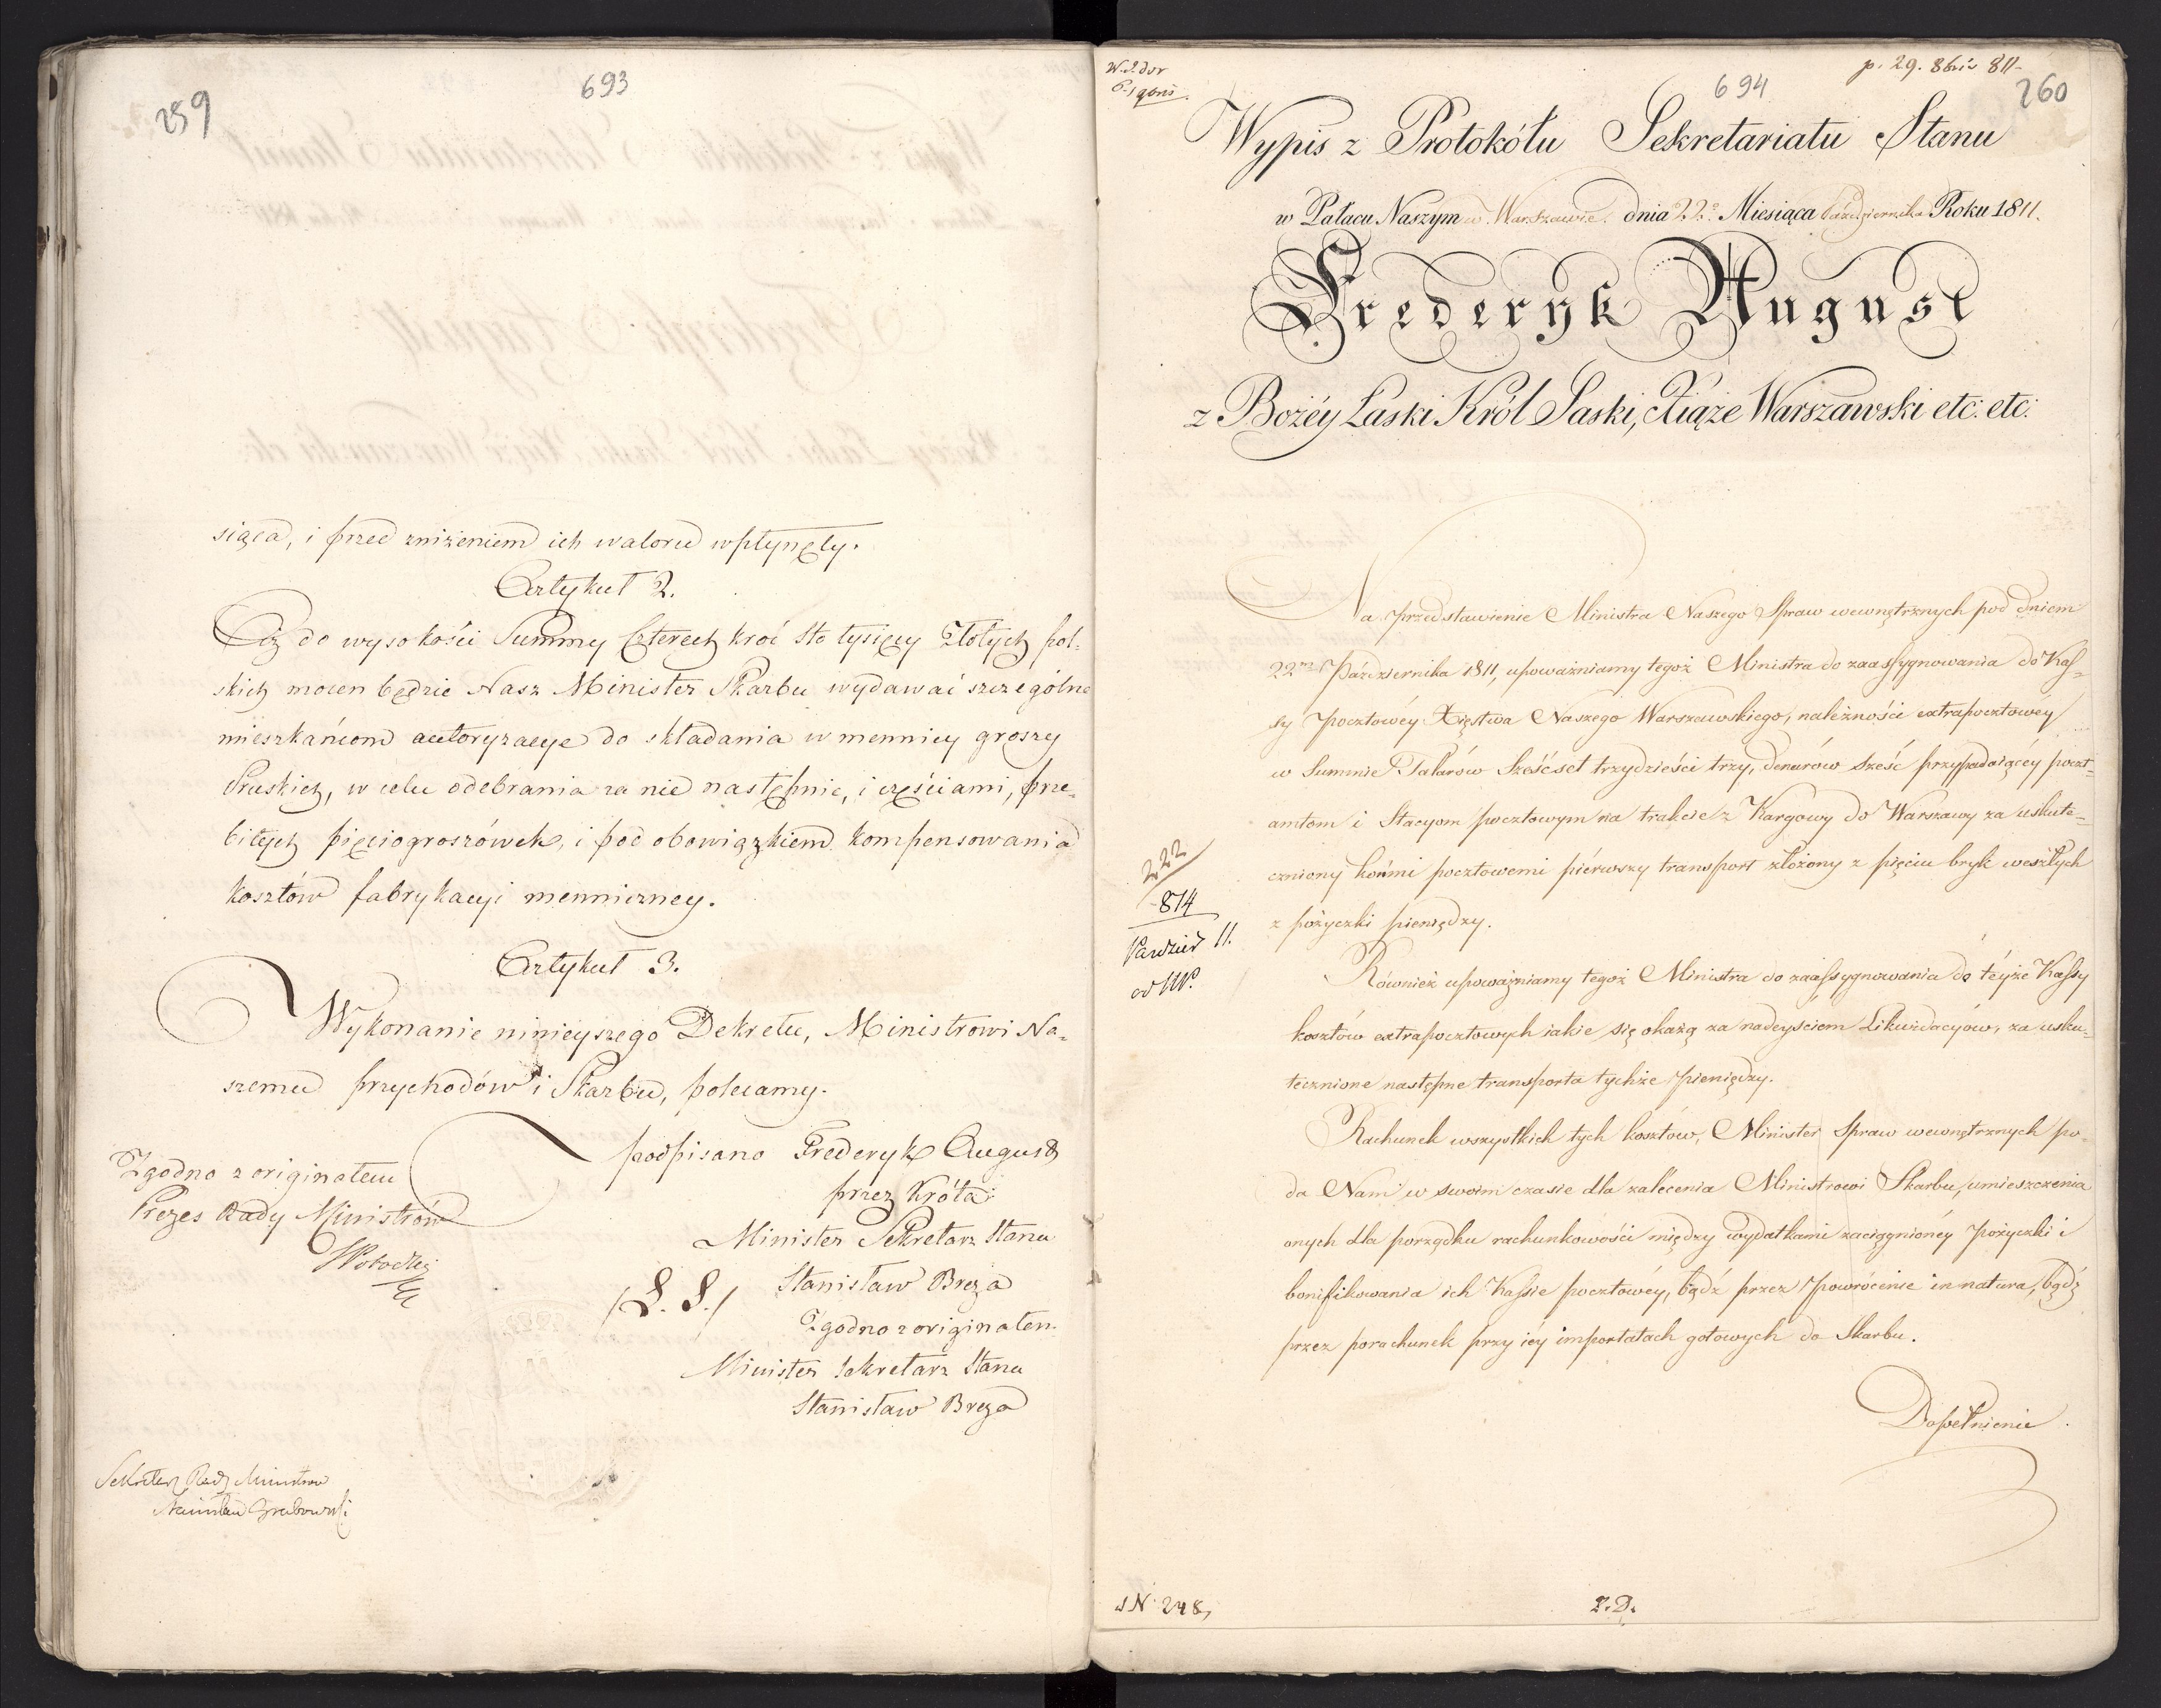 259
693
siąca, i przed zniżeniem ich waloru wpłynęły.
Artykuł 2.
Aż do wysokości Summy Czterech kroć sto tysięcy Złotych pol-
skich mocen będzie Nasz Minister Skarbu wydawać szczególne
mieszkańcom autoryzacye do składania w mennicy groszy
Pruskich, w celu odebrania za nie następnie, i częściami, prze-
bitych pięciogroszówek, i pod obowiązkiem kompensowania
kosztów fabrykacyi menniczney.
Artykuł 3.
Wykonanie ninieyszego Dekretu, Ministrowi Na-
szemu przychodów i Skarbu, polecamy.
podpisano Frederyk August
przez Króla:
Minister Sekretarz Stanu
/L. S./ Stanisław Breza
Zgodno z originałem
Minister Sekretarz Stanu
Stanisław Breza
Zgodno z originałem
Prezes Rady Ministrów
Sekretarz Rady Ministrów
Stanisław Grabowski
p. 29. 8bris 811.
694
260
Wypis z Protokółu Sekretariatu Stanu
w Pałacu Naszym w Warszawie dnia 22º Miesiąca Października Roku 1811.
Frederyk August
z Bożéy Łaski Król Saski, Xiąże Warszawski etc: etc:
Na przedstawienie Ministra Naszego Spraw wewnętrznych pod dniem
22m Października 1811, upoważniamy tegoż Ministra do zaassygnowania do Kas-
sy pocztowéy Xięstwa Naszego Warszawskiego, należności extrapocztowéy
w Summie Talarów Sześćset trzydzieści trzy, denarów sześć przypadaiącéy poczt-
amtom i Stacyom pocztowym na trakcie z Kargowy do Warszawy za uskute-
czniony końmi pocztowemi piérwszy transport złożony z pięciu bryk weszłych
z pożyczki pieniędzy.
Również upoważniamy tegoż Ministra do zaassygnowania do téyże Kassy
kosztów extrapocztowych iakie się okażą za nadeyściem Likwidacyów, za usku-
tecznione następne transporta tychże pieniędzy.
Rachunek wszystkich tych kosztów, Minister Spraw wewnętrznych po-
da Nam w swoim czasie dla zalecenia Ministrowi Skarbu, umieszczenia
onych dla porządku rachunkowości między wydatkami zaciągnionéy pożyczki i
bonifikowania ich Kassie pocztowéy, bądź przez powrócenie in natura, bądź
przez porachunek przy iéy importatach gotowych do Skarbu.
Dopełnienie
222
814
Pazdzier 11.
N 248,